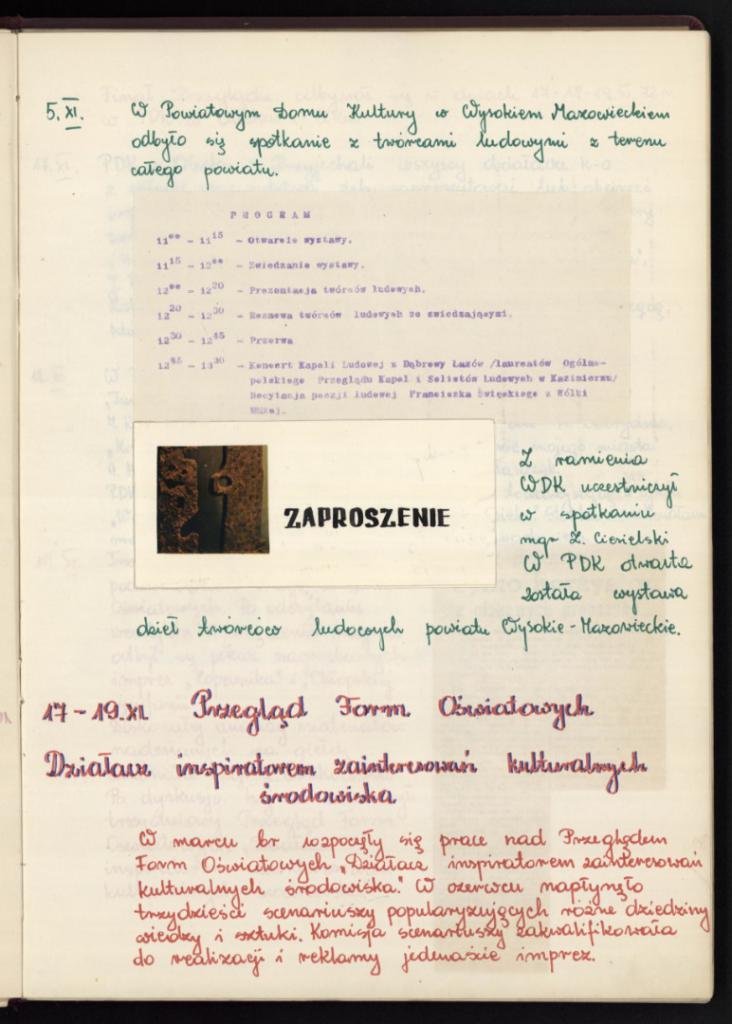 5.XI. W Powiatowym Domu Kultury w Wysokiem Mazowieckiem
odbyło się spotkanie z twórcami ludowymi z terenu
całego powiatu.
PROGRAM
11⁰⁰ – 11¹⁵ – Otwarcie wystawy.
11¹⁵ – 12⁰⁰ – Zwiedzanie wystawy.
12⁰⁰ – 12²⁰ – Prezentacja twórców ludowych.
12²⁰ – 12³⁰ – Rozmowa twórców ludowych ze zwiedzającymi.
12³⁰ – 12⁴⁵ – Przerwa
12⁴⁵ – 13³⁰ – Koncert Kapeli Ludowej z Dąbrowy Łazów /laureatów Ogólno-
polskiego Przeglądu Kapel i Solistów Ludowych w Kazimierzu/
Recytacja poezji ludowej Franciszka Święckiego z Wólki
ZAPROSZENIE
Z ramienia
WDK uczestniczył
w spotkaniu
mgr Z. Ciesielski
W PDK otwarta
została wystawa
dzieł twórców ludowych powiatu Wysokie-Mazowieckie.
17 – 19.XI. Przegląd Form Oświatowych
Działacz inspiratorem zainteresowań kulturalnych
środowiska
W marcu br rozpoczęły się prace nad Przeglądem
Form Oświatowych „Działacz inspiratorem zainteresowań
kulturalnych środowiska." W czerwcu napłynęło
trzydzieści scenariuszy popularyzujących różne dziedziny
wiedzy i sztuki. Komisja scenariuszy zakwalifikowała
do realizacji i reklamy jedenaście imprez.